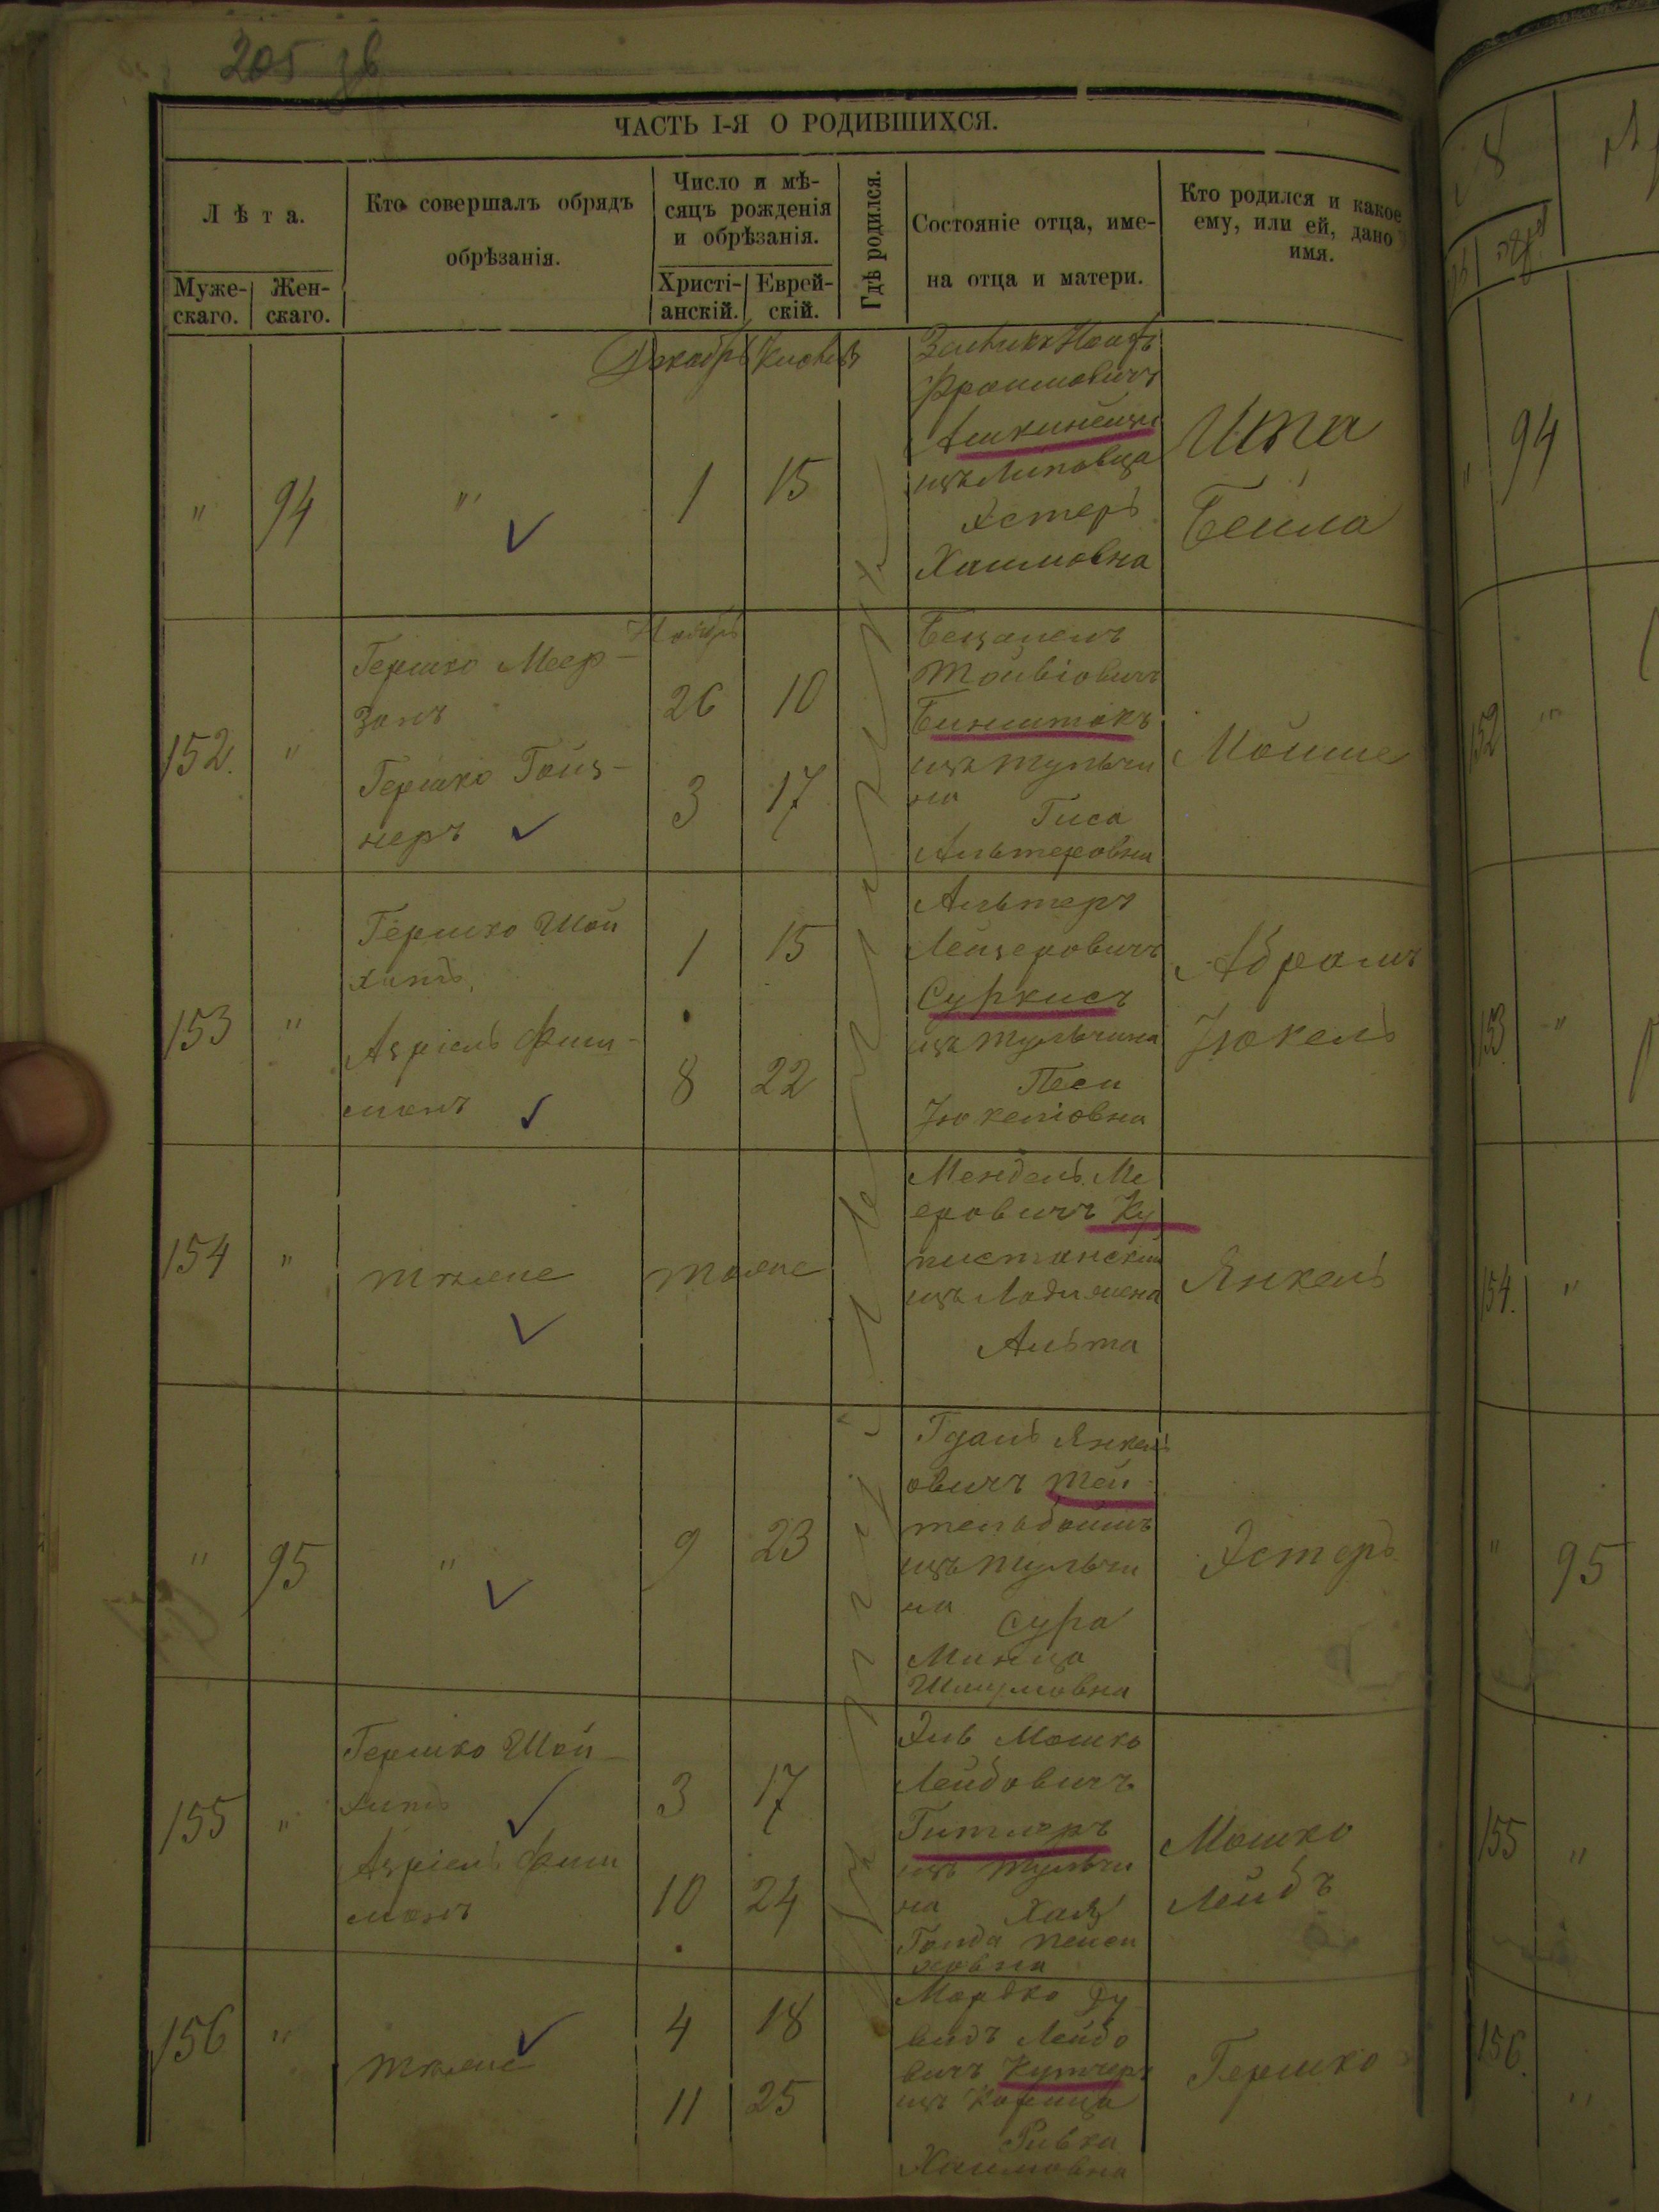 205 зв
ЧАСТЬ I-Я О РОДИВШИХСЯ.
Лѣта.
Муже-
скаго.
Жен-
скаго.
Кто совершалъ обрядъ
обрѣзанія.
Число и мѣ-
сяцъ рожденія
и обрѣзанія.
Христі-
анскій.
Еврей-
скій.
Гдѣ родился.
Состояніе отца, име-
на отца и матери.
Кто родился и какое
ему, или ей, дано
имя.
Декабрь
" 94 " 1 15
Фроимовичъ
изъ Липовца
Эстеръ
Хаимовна
Ита
Бейла
Ноябрь
152. "
Гершко Меер-
зонъ
Гершко Гойз-
неръ
26 10
3 17
Бецалель
Бинштокъ
изъ Тульчи
на Гиса
Альтеровна
Мойше
153 "
Гершко Шой
хитъ
Азріель Фиш-
манъ
1 15
8 22
Альтеръ
Лейзеровичъ
Суркисъ
изъ Тульчина
Песи
Іокеліовна
Абрамъ
Іокель
154 "
тоже тоже
Мендель Ме
еровичъ Ку
изъ Ладыжена
Альта
Янкель
" 95 " 9 23
Янкель
овичъ Тей-
тельбоймъ
изъ Тульчи
на Сура
Минца
Шлумовна
Эстеръ
155 "
Гершко Шой-
хитъ
Азріель Фиш
манъ
3 17
10 24
Эль Мошко
Лейбовичъ
Гитлеръ
изъ Тульчи
на Хая
Голда Пейси
ховна
Мошко
Лейбъ
156 "
тоже
4 18
11 25
Мордко Ду
видъ Лейбо
вичъ Кутчеръ
Ривка
Хаимовна
Гершко
94
152 "
153 "
154. "
" 95
155 "
156. "